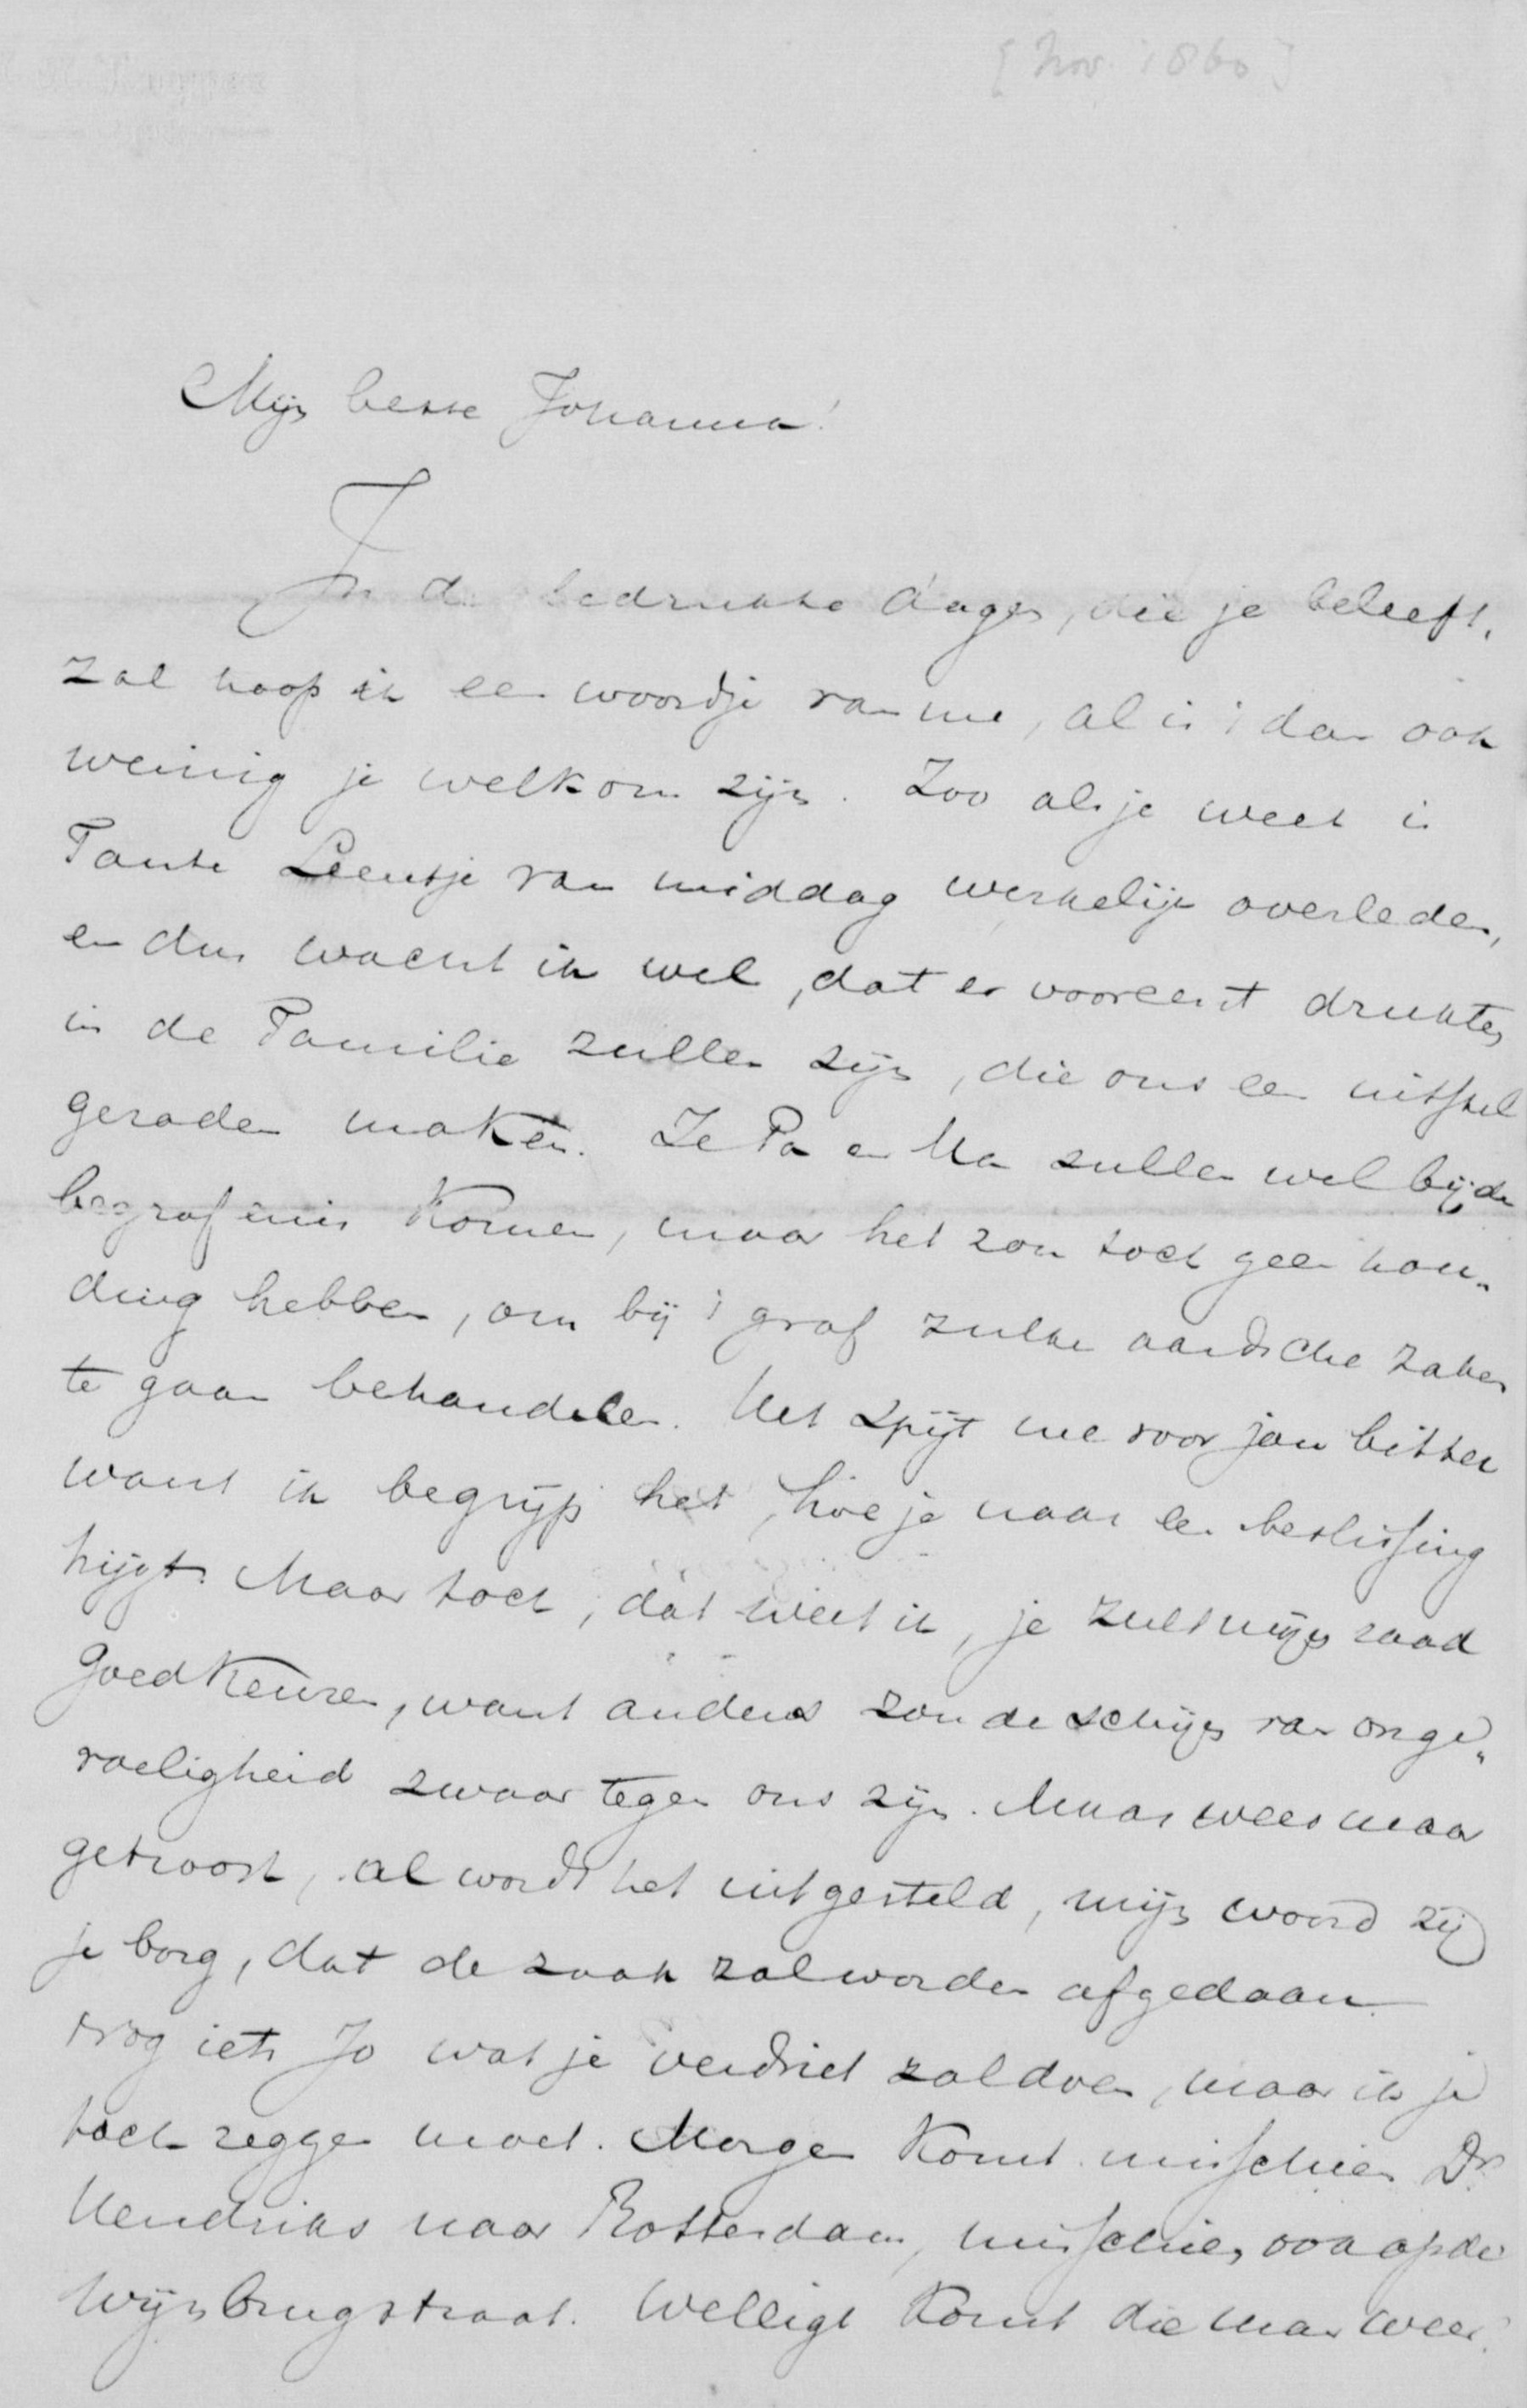 [Nov. 1860]
Mijn beste Johanna!
In de bedrukte dagen, die je beleeft,
zal hoop ik een woordje van me, al is 't dan ook
weinig je welkom zijn. Zoo als je weet is
Tante Leentje van middag werkelijk overleden,
en dus wacht ik wel, dat er vooreerst drukten
in de Familie zullen zijn, die ons een uitstel
geraden maken. Je Pa en Ma zullen wel bij de
begrafenis komen, maar het zou toch geen hou„
ding hebben, om bij 't graf zulke aardsche zaken
te gaan behandelen. Het spijt me voor jou bitter
want ik begrijp het, hoe je naar een beslissing
hijgt. Maar toch, dàt weet ik, je zult mijn raad
goedkeuren, want anders zou de schijn van onge„
voeligheid zwaar tegen ons zijn. Maar wees maar
getroost, al wordt het uitgesteld, mijn woord zij
je borg, dat de zaak zal worden afgedaan.
Nog iets Jo wat je verdriet zal doen, maar ik je
toch zeggen moet. Morgen komt misschien Dr.
Hendriks naar Rotterdam, misschien ook op de
Wijnbrugstraat. Welligt komt die man weer